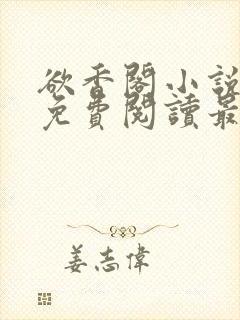 欲香閣小說
免費閱讀最
姜志偉